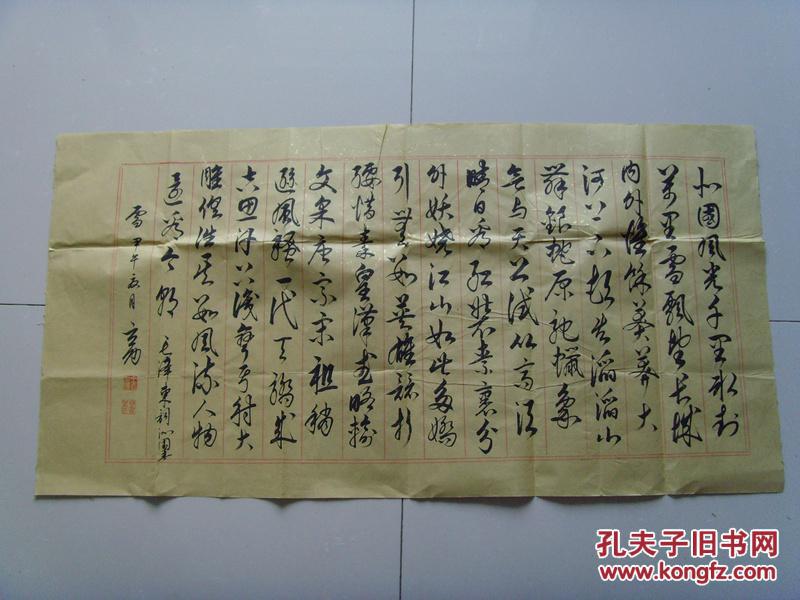 北国风光千里冰封
万里雪飘望长城
内外惟馀莽莽大
河上下顿失滔滔山
舞银蛇原驰蜡象
欲与天公试比高须
晴日看红装素裹分
外妖娆江山如此多娇
引无数英雄竞折
腰惜秦皇汉武略输
文采唐宗宋祖稍
逊风骚一代天骄成
吉思汗只识弯弓射大
雕俱往矣数风流人物
还看今朝 毛泽东词沁园春
雪 甲午 月
孔夫子旧书网
www.kongfz.com